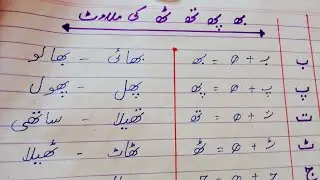 بھ پھ تھ ٹھ کی ملاوٹ
ب ب + ھ = بھ بھائی - بھالو
پ پ + ھ = پھ پھل - پھول
ت ت + ھ = تھ تھیلا - ساتھی
ٹ ٹ + ھ = ٹھ ٹھاٹ - ٹھیلا
ج